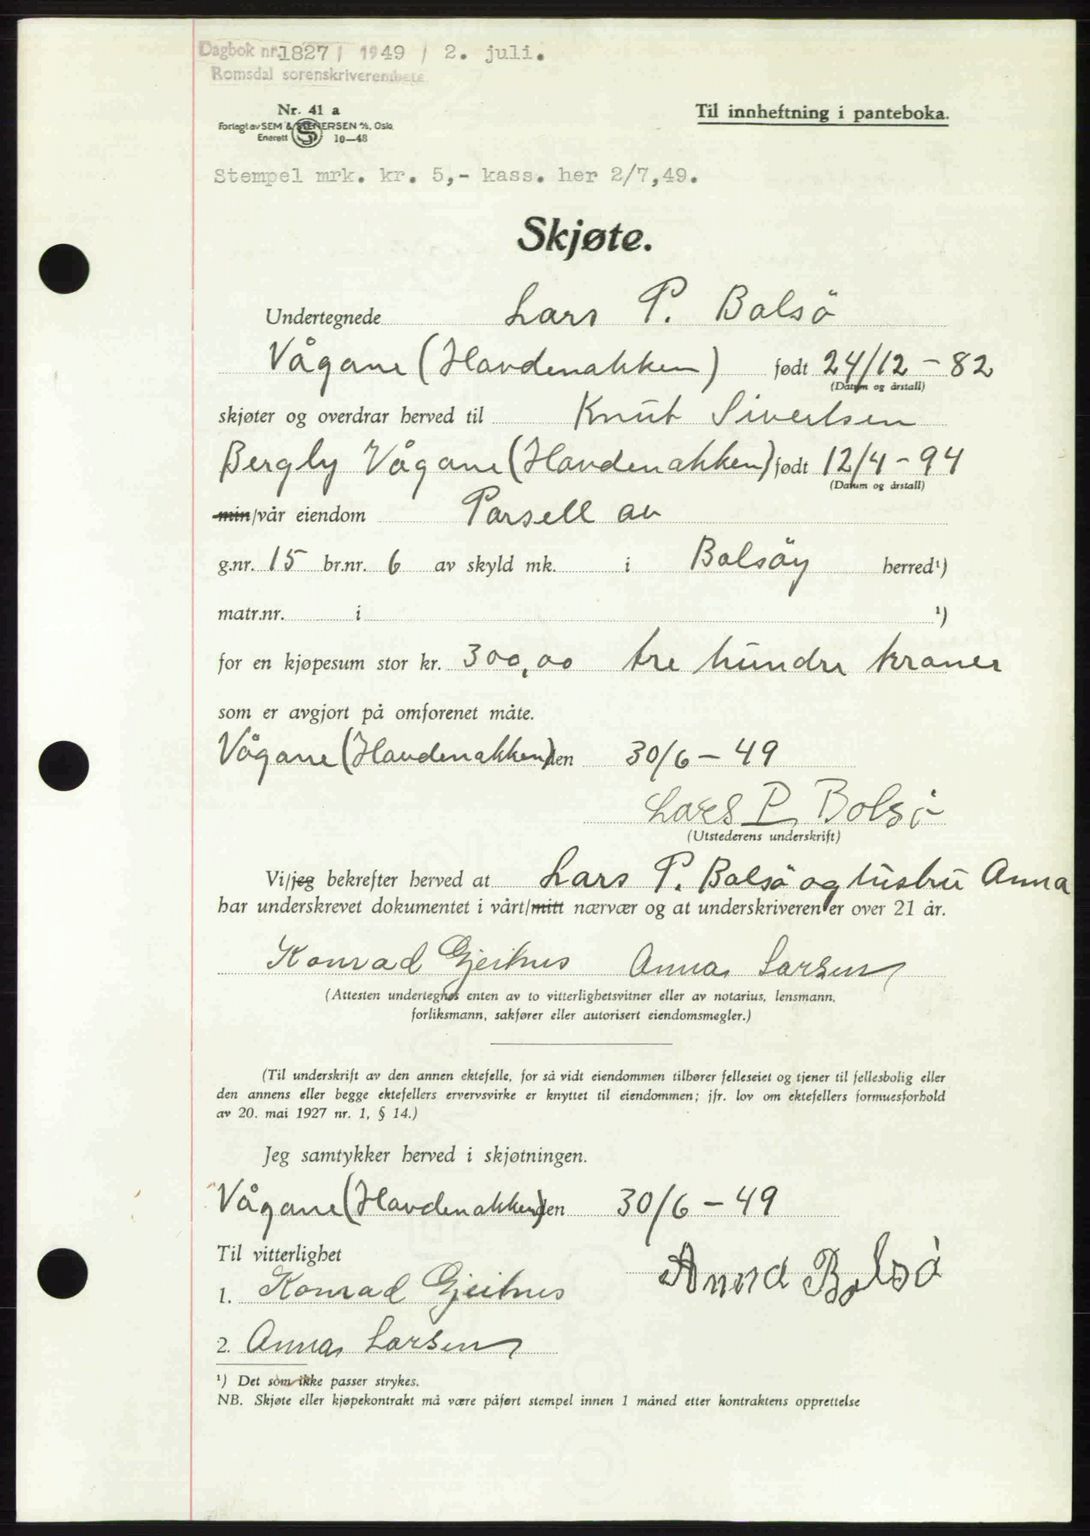 Dagbok nr. 1827 / 1949 / 2. juli.
Romsdal sorenskriverembete
Nr. 41 a
Forlagt av SEM & STENERSEN A/S, Oslo
Enerett S 10—48
Til innheftning i panteboka.
Stempel mrk. kr. 5,- kass. her 2/7,49.
Skjøte.
Undertegnede Lars P. Bolsö
Vågane (Havdenakken) født 24/12 - 82
(Datum og årstall)
skjøter og overdrar herved til Knut Sivertsen
Bergly Vågane (Havdenakken) født 12/4 - 94
(Datum og årstall)
min/vår eiendom Parsell av
g.nr. 15 br.nr. 6 av skyld mk. i Bolsöy herred¹)
matr.nr. i ¹)
for en kjøpesum stor kr. 300,00 tre hundre kroner
som er avgjort på omforenet måte.
Vågane (Havdenakken) den 30/6 - 49
Lars P. Bolsö
(Utstederens underskrift)
Vi/jeg bekrefter herved at Lars P. Bolsö og hustru Anna
har underskrevet dokumentet i vårt/mitt nærvær og at underskriveren er over 21 år.
Konrad Gjeitnes Anna Larsen
(Attesten undertegnes enten av to vitterlighetsvitner eller av notarius, lensmann,
forliksmann, sakfører eller autorisert eiendomsmegler.)
(Til underskrift av den annen ektefelle, for så vidt eiendommen tilhører felleseiet og tjener til fellesbolig eller
den annens eller begge ektefellers ervervsvirke er knyttet til eiendommen; jfr. lov om ektefellers formuesforhold
av 20. mai 1927 nr. 1, § 14.)
Jeg samtykker herved i skjøtningen.
Vågane (Havdenakken) den 30/6 - 49
Til vitterlighet
Anna Bolsö
1. Konrad Gjeitnes
2. Anna Larsen
¹) Det som ikke passer strykes.
NB. Skjøte eller kjøpekontrakt må være påført stempel innen 1 måned etter kontraktens opprettelse